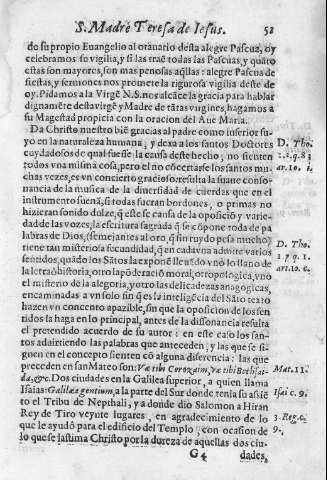 S. Madre Teresa de Iesus. 52
do su propio Euangelio al otauario desta alegre Pascua, oy
celebramos su vigilia, y si las trae todas las Pascuas, y quãto
estas son mayores, son mas penosas aq̃llas: alegre Pascua de
fiestas, y sermones nos promete la rigurosa vigilia deste de
oy. Pidamos a la Virgẽ N.S. nos alcãce la gracia para hablar
dignamẽte desta virgẽ y Madre de tãtas virgines, hagamos a
su Magestad propicia con la oracion del Aue Maria.
Da Christo nuestro biẽ gracias al padre como inferior su-
yo en la naturaleza humana, y dexa a los santos Doctores
cuydadosos de qual fuesse la causa deste hecho, no sienten
todos vna misma cosa, pero el no cõcertarse los santos mu-
chas vezes, es vn concierto gracioso: resulta la suaue conso-
nancia de la musica de la diuersidad de cuerdas que en el
instrumento suenã, si todas fueran bordones, o primas no
hizieran sonido dolze, q̃ este se causa de la oposiciõ y varie-
dad de las vozes; la escritura sagrada q̃ se cõpone toda de pa
labras de Dios, (semejantes al oro, q̃ sin ruydo pesa mucho)
tiene tan misteriosa fecundidad, q̃ en cada vna admite varios
sentidos, quãdo los Sãtos la exponẽ llenãdo vno lo llano de
la letra õ historia, otro la põderaciõ moral, o tropologica, vno
el misterio de la alegoria, y otro las delicadezas anagogicas,
encaminadas a vn solo fin q̃ es la inteligẽcia del Sãto texto
hazen vn concerto apazible, sin que la oposicion de los sen
tidos la haga en lo principal, antes de la dissonancia resulta
el pretendido acuerdo de su autor: en este caso los san-
tos adairtiendo las palabras que anteceden, y las que se si-
guen en el concepto sienten cõ alguna diferencia: las que
preceden en san Mateo son: Væ tibi Corozaim, Væ tibi Bethsai-
da, &c. Dos ciudades en la Galilea superior, a quien llama
Isaias: Galileæ gentium, a la parte del Sur donde tenia su assiẽ
to el Tribu de Nepthali, y a donde dio Salomon a Hiran
Rey de Tiro veynte lugares, en agradecimiento de lo
que le ayudò para el edificio del Templo, con ocasion de
lo que se lastima Christo por la dureza de aquellas dos ciu-
G4 dades,
D. Tho.
2. 2. q. 83
ar. 10. 1.
D. Tho.
1. p q. 1.
ar. 10. c.
Mat. 11.
Isai c. 9.
3. Reg. c.
9.